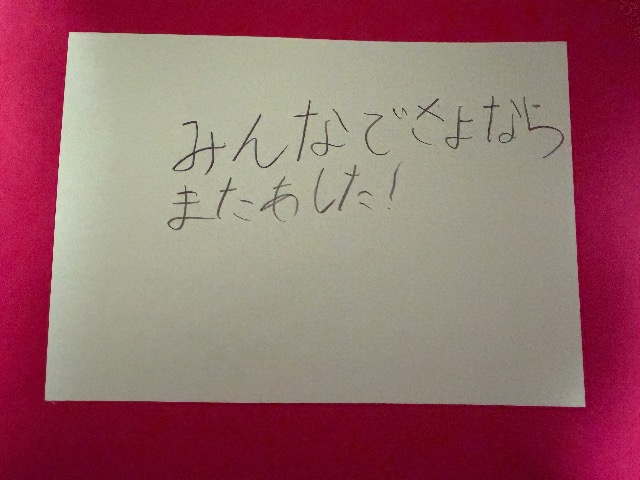 みんなでさよなら
またあした!